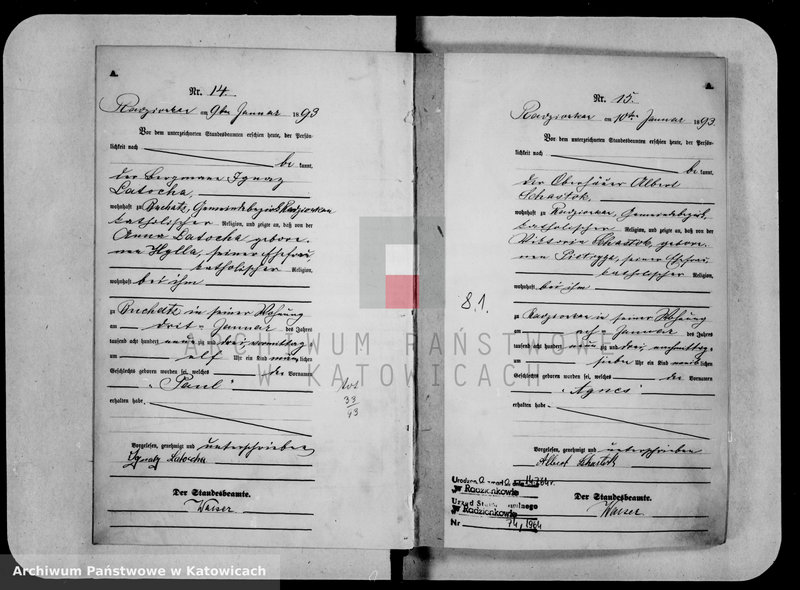 A.
Nr. 14.
Radzionkau am 9ten Januar 1893
Vor dem unterzeichneten Standesbeamten erschien heute, der Persön-
lichkeit nach
be kannt,
der Bergmann Ignaz
Latocha,
wohnhaft zu Buchatz, Gemeindebezirk Radzionkau
katholischer Religion, und zeigte an, daß von der
Anna Latocha gebore-
nen Hylla, seiner Ehefrau
katholischer Religion,
wohnhaft bei ihm
zu Buchatz in seiner Wohnung
am drit- Januar des Jahres
tausend acht hundert neunzig und drei vormittags
um elf Uhr ein Kind männlichen
Geschlechts geboren worden sei, welches den Vornamen
"Paul"
erhalten habe.
Vorgelesen, genehmigt und unterschrieben
Ignatz Latocha
Der Standesbeamte.
Kaiser
33
43
A.
Nr. 15.
Radzionkau am 10ten Januar 1893.
Vor dem unterzeichneten Standesbeamten erschien heute, der Persön-
lichkeit nach
be kannt,
der Oberhäuer Albert
Schastok,
wohnhaft zu Radzionkau, Gemeindebezirk,
katholischer Religion, und zeigte an, daß von der
Viktoria Schastok, gebore-
nen Pietryga, seiner Ehefrau
katholischer Religion,
wohnhaft bei ihm
zu Radzionkau in seiner Wohnung
am ach- Januar des Jahres
tausend acht hundert neunzig und drei nachmittags
um sieben Uhr ein Kind weiblichen
Geschlechts geboren worden sei, welches den Vornamen
"Agnes"
erhalten habe.
Vorgelesen, genehmigt und unterschrieben
Albert Schastok
Der Standesbeamte.
Kaiser
8.1.
w Radzionkowie
Urząd
w Radzionkowie
Nr 74/1964
ARCHIWUM PAŃSTWOWE
W KATOWICACH
Archiwum Państwowe w Katowicach